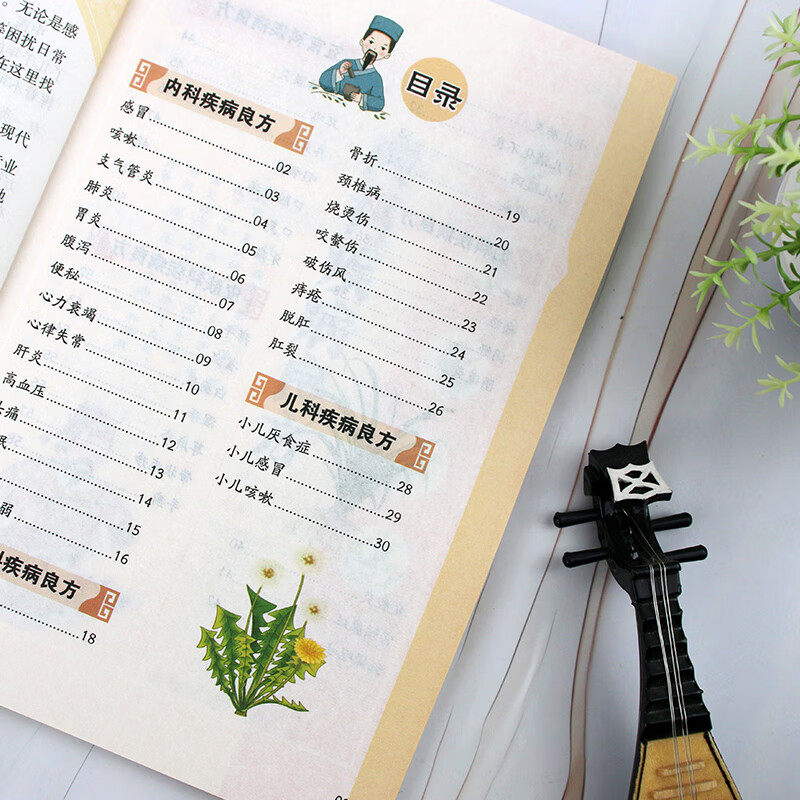 。无论是感
等困扰日常
在这里找
现代
业
目录
内科疾病良方
感冒……02
咳嗽……03
支气管炎……04
肺炎……05
胃炎……06
腹泻……07
便秘……08
心力衰竭……09
心律失常……10
肝炎……11
高血压……12
痛……13
眠……14
……15
弱……16
科疾病良方
……18
骨折……19
颈椎病……20
烧烫伤……21
咬螫伤……22
破伤风……23
痔疮……24
脱肛……25
肛裂……26
儿科疾病良方
小儿厌食症……28
小儿感冒……29
小儿咳嗽……30